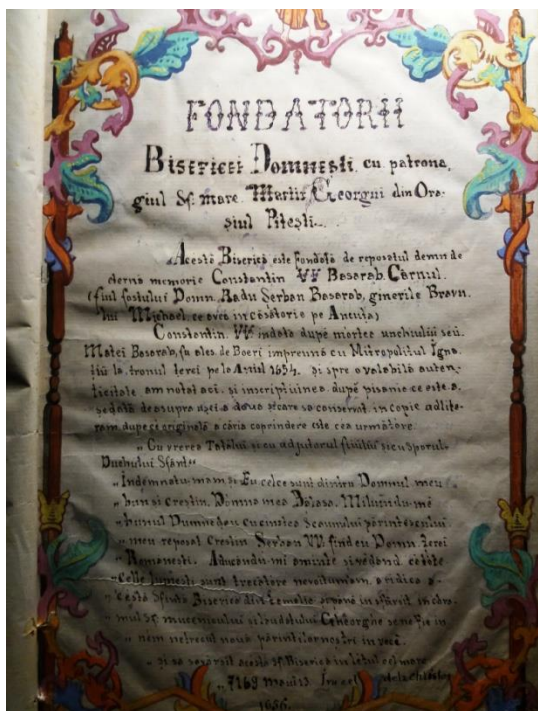 FONDATORII
Bisericei Domnesti cu patrona,
giul Sf. mare Martir Georgui din Ora,
șiul Pitești.
Acestă Biserică este fondată de reposatul demn de
eterna memorie Constantin VV Basarab Cârnul,
(fiul fostului Domn, Radu Șerban Basarab, ginerile Bravu,
lui Michael ce avea in căsătorie pe Ancuța)
Constantin VV indată după mortea unchiului seu
Matei Basarab, fu ales de Boeri impreună cu Mitropolitul Igna,
tiu la tronul terei pe la Aniul 1654. și spre o valabilă auten,
ticitate am notat aci și inscriptiunea după pisania ce este a,
ședată deasupra ușei a doua și care sa conservat in copie adlite,
ram după cea originală a căria coprindere este cea următore
„Cu vrerea Tatălui și cu adjutorul fiiului si cu sporul
Duchului Sfânt"
„Indemnatu mam și Eu celce sunt dintru Domnul meu
„bun si crestin, Dómna mea Bălașa. Miluindu-mĕ
„bunul Dumnedeu cu cinstea Scaunului părintescului
„meu reposat Crestin Șerban VV fiind eu Domn Terei
„Romanesti. Aducându-mi aminte și vĕdând că tóte
„celle lumești sunt trecĕtore a ridica a,
„cestă Sfintă Biserică din temelie și pănă in sfărșit in chra,
„mul sf. mucenicului Gheorghe se ne fie in
„nem nouă și părintilor nostri in veci.
„și sa săvărsit acestă sf. Biserică in letul cel mare
„7169 1656.